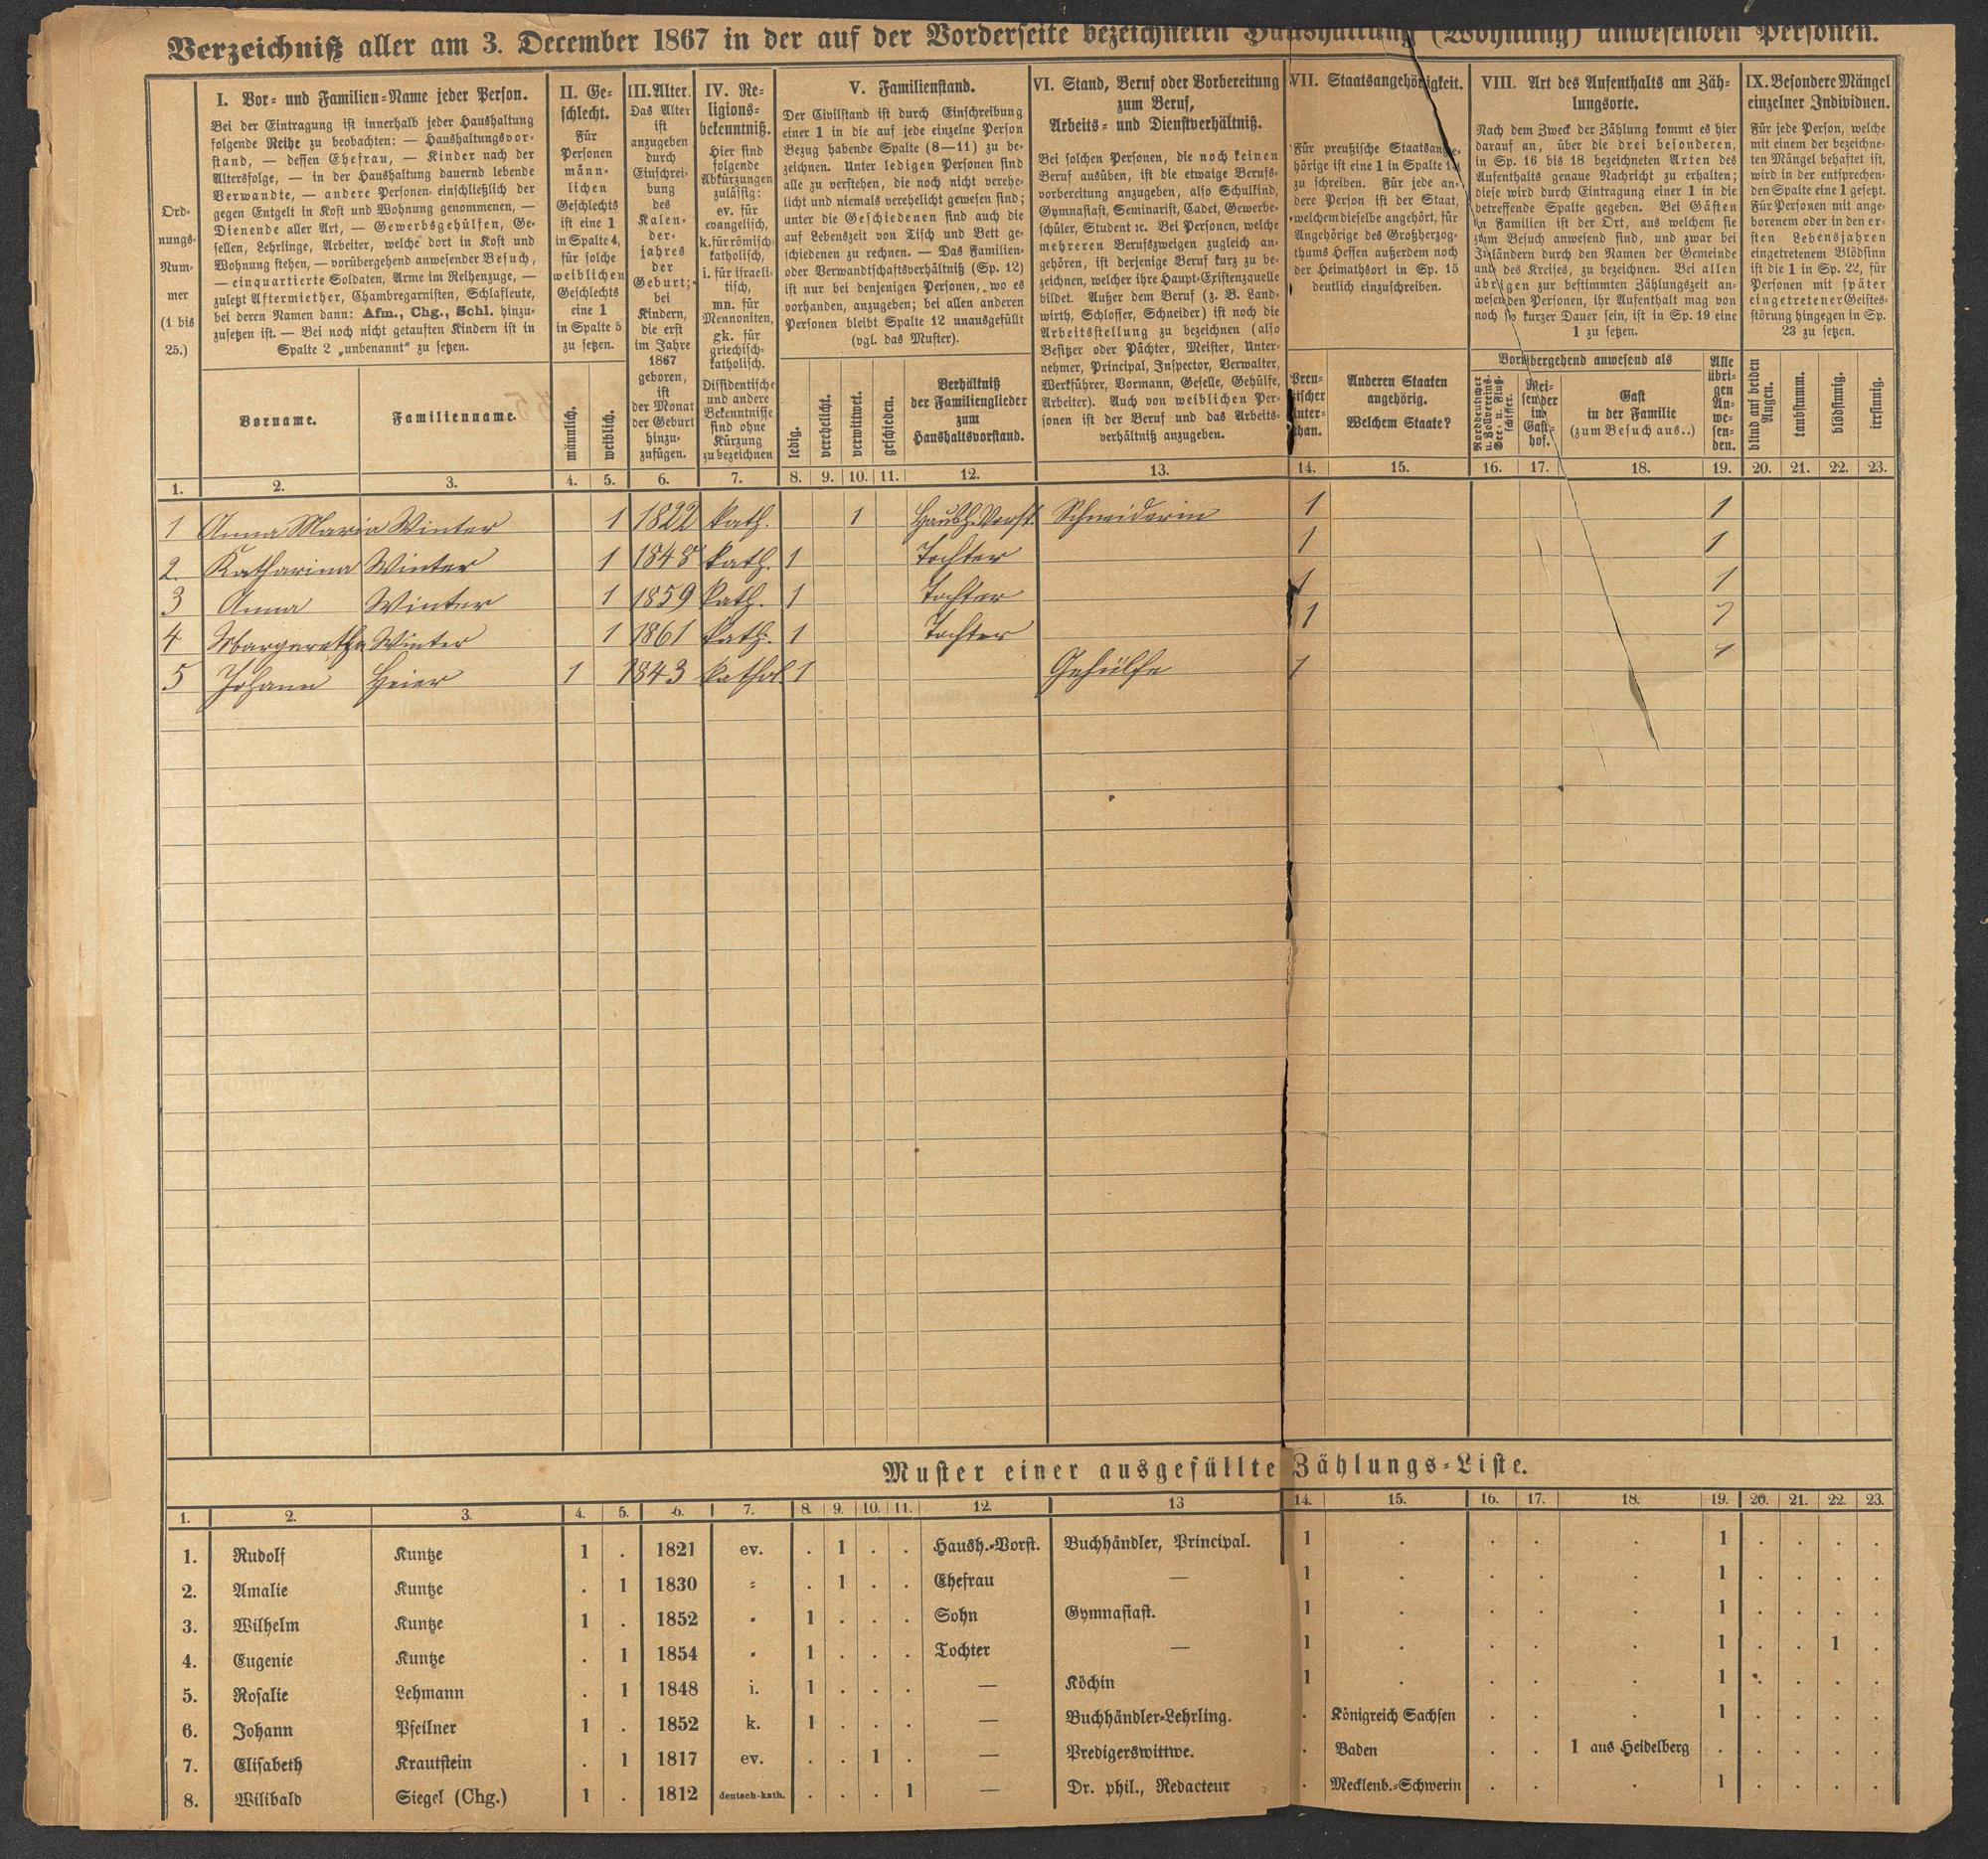 Verzeichniß aller am 3. December 1867 in der auf der Vorderseite bezeichneten Haushaltung (Wohnung) anwesenden Personen.
Ord-
nungs-
Num-
mer
(1 bis
25.)
I. Vor- und Familien-Name jeder Person.
Bei der Eintragung ist innerhalb jeder Haushaltung
folgende Reihe zu beobachten: — Haushaltungsvor-
stand, — dessen Ehefrau, — Kinder nach der
Altersfolge, — in der Haushaltung dauernd lebende
Verwandte, — andere Personen einschließlich der
gegen Entgelt in Kost und Wohnung genommenen, —
Dienende aller Art, — Gewerbsgehülfen, Ge-
sellen, Lehrlinge, Arbeiter, welche dort in Kost und
Wohnung stehen, — vorübergehend anwesender Besuch,
— einquartierte Soldaten, Arme im Reihenzuge, —
zuletzt Aftermiether, Chambregarnisten, Schlafleute,
bei deren Namen dann: Afm., Chg., Schl. hinzu-
zusetzen ist. — Bei noch nicht getauften Kindern ist in
Spalte 2 „unbenannt" zu setzen.
Vorname.
Familienname.
II. Ge-
schlecht.
Für
Personen
männ-
lichen
Geschlechts
ist eine 1
in Spalte 4,
für solche
weiblichen
Geschlechts
eine 1
in Spalte 5
zu setzen.
männlich.
weiblich.
III. Alter.
Das Alter
ist
anzugeben
durch
Einschrei-
bung
des
Kalen-
der-
jahres
der
Geburt;
bei
Kindern,
die erst
im Jahre
1867
geboren,
ist
der Monat
der Geburt
hinzu-
zufügen.
IV. Re-
ligions-
bekenntniß.
Hier sind
folgende
Abkürzungen
zulässig:
ev. für
evangelisch,
k. für römisch-
katholisch,
i. für israeli-
tisch,
mn. für
Mennoniten,
gk. für
griechisch-
katholisch.
Dissidentische
und andere
Bekenntnisse
sind ohne
Kürzung
zu bezeichnen
V. Familienstand.
Der Civilstand ist durch Einschreibung
einer 1 in die auf jede einzelne Person
Bezug habende Spalte (8—11) zu be-
zeichnen. Unter ledigen Personen sind
alle zu verstehen, die noch nicht verehe-
licht und niemals verehelicht gewesen sind;
unter die Geschiedenen sind auch die
auf Lebenszeit von Tisch und Bett ge-
schiedenen zu rechnen. — Das Familien-
oder Verwandtschaftsverhältniß (Sp. 12)
ist nur bei denjenigen Personen, wo es
vorhanden, anzugeben; bei allen anderen
Personen bleibt Spalte 12 unausgefüllt
(vgl. das Muster).
ledig.
verehelicht.
verwittwet.
geschieden.
Verhältniß
der Familienglieder
zum
Haushaltsvorstand.
VI. Stand, Beruf oder Vorbereitung
zum Beruf,
Arbeits- und Dienstverhältniß.
Bei solchen Personen, die noch keinen
Beruf ausüben, ist die etwaige Berufs-
vorbereitung anzugeben, also Schulkind,
Gymnasiast, Seminarist, Cadet, Gewerbe-
schüler, Student ꝛc. Bei Personen, welche
mehreren Berufszweigen zugleich an-
gehören, ist derjenige Beruf kurz zu be-
zeichnen, welcher ihre Haupt-Existenzquelle
bildet. Außer dem Beruf (z. B. Land-
wirth, Schlosser, Schneider) ist noch die
Arbeitsstellung zu bezeichnen (also
Besitzer oder Pächter, Meister, Unter-
nehmer, Principal, Inspector, Verwalter,
Werkführer, Vormann, Geselle, Gehülfe,
Arbeiter). Auch von weiblichen Per-
sonen ist der Beruf und das Arbeits-
verhältniß anzugeben.
VII. Staatsangehörigkeit.
Für preußische Staatsange-
hörige ist eine 1 in Spalte 14
zu schreiben. Für jede an-
dere Person ist der Staat,
welchem dieselbe angehört, für
Angehörige des Großherzog-
thums Hessen außerdem noch
der Heimathsort in Sp. 15
deutlich einzuschreiben.
Preu-
ßischer
Unter-
than.
Anderen Staaten
angehörig.
Welchem Staate?
VIII. Art des Aufenthalts am Zäh-
lungsorte.
Nach dem Zweck der Zählung kommt es hier
darauf an, über die drei besonderen,
in Sp. 16 bis 18 bezeichneten Arten des
Aufenthalts genaue Nachricht zu erhalten;
diese wird durch Eintragung einer 1 in die
betreffende Spalte gegeben. Bei Gästen
in Familien ist der Ort, aus welchem sie
zum Besuch anwesend sind, und zwar bei
Inländern durch den Namen der Gemeinde
und des Kreises, zu bezeichnen. Bei allen
übrigen zur bestimmten Zählungszeit an-
wesenden Personen, ihr Aufenthalt mag von
noch so kurzer Dauer sein, ist in Sp. 19 eine
1 zu setzen.
Vorübergehend anwesend als
Norddeutscher
u. Zollvereins-
See- u. Fluß-
schiffer.
Rei-
sender
im
Gast-
hof.
Gast
in der Familie
(zum Besuch aus..)
Alle
übri-
gen
An-
we-
sen-
den.
IX. Besondere Mängel
einzelner Individuen.
Für jede Person, welche
mit einem der bezeichne-
ten Mängel behaftet ist,
wird in der entsprechen-
den Spalte eine 1 gesetzt.
Für Personen mit ange-
borenem oder in den er-
sten Lebensjahren
eingetretenem Blödsinn
ist die 1 in Sp. 22, für
Personen mit später
eingetretener Geistes-
störung hingegen in Sp.
23 zu setzen.
blind auf beiden
Augen.
taubstumm.
blödsinnig.
irrsinnig.
1. 2. 3. 4. 5. 6. 7. 8. 9. 10. 11. 12. 13. 14. 15. 16. 17. 18. 19. 20. 21. 22. 23.
1 Anna Maria Winter 1 1822 kath. 1 Haush. Vorst. Schneiderin 1 1
2. Katharina Winter 1 1848 kath. 1 Tochter 1 1
3 Anna Winter 1 1859 kath. 1 Tochter 1 1
4 Margaretha Winter 1 1861 kath. 1 Tochter 1 1
5 Johann Heier 1 1843 kathol. 1 Gehülfe 1 1
Muster einer ausgefüllte Zählungs-Liste.
1. 2. 3. 4. 5. 6. 7. 8. 9. 10. 11. 12. 13 14. 15. 16. 17. 18. 19. 20. 21. 22. 23.
1. Rudolf Kuntze 1 . 1821 ev. . 1 . . Haush.-Vorst. Buchhändler, Principal. 1 . . . . 1 . . . .
2. Amalie Kuntze . 1 1830 = . 1 . . Ehefrau — 1 . . . . 1 . . . .
3. Wilhelm Kuntze 1 . 1852 " 1 . . . Sohn Gymnasiast. 1 . . . . 1 . . . .
4. Eugenie Kuntze . 1 1854 " 1 . . . Tochter — 1 . . . . 1 . . 1 .
5. Rosalie Lehmann . 1 1848 i. 1 . . . — Köchin 1 . . . . 1 . . . .
6. Johann Pfeilner 1 . 1852 k. 1 . . . — Buchhändler-Lehrling. . Königreich Sachsen . . . 1 . . . .
7. Elisabeth Krautstein . 1 1817 ev. . . 1 . — Predigerswittwe. . Baden . . 1 aus Heidelberg . . . . .
8. Wilibald Siegel (Chg.) 1 . 1812 deutsch-kath. . . . 1 — Dr. phil., Redacteur . Mecklenb.-Schwerin . . . 1 . . . .